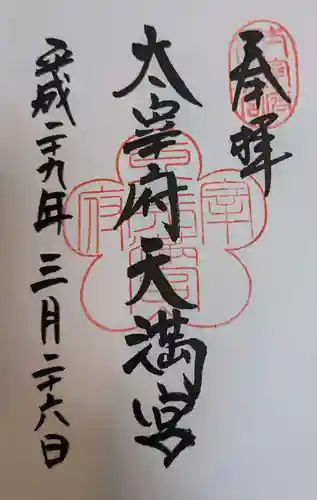 奉拝
太宰府天満宮
平成二十九年三月二十六日